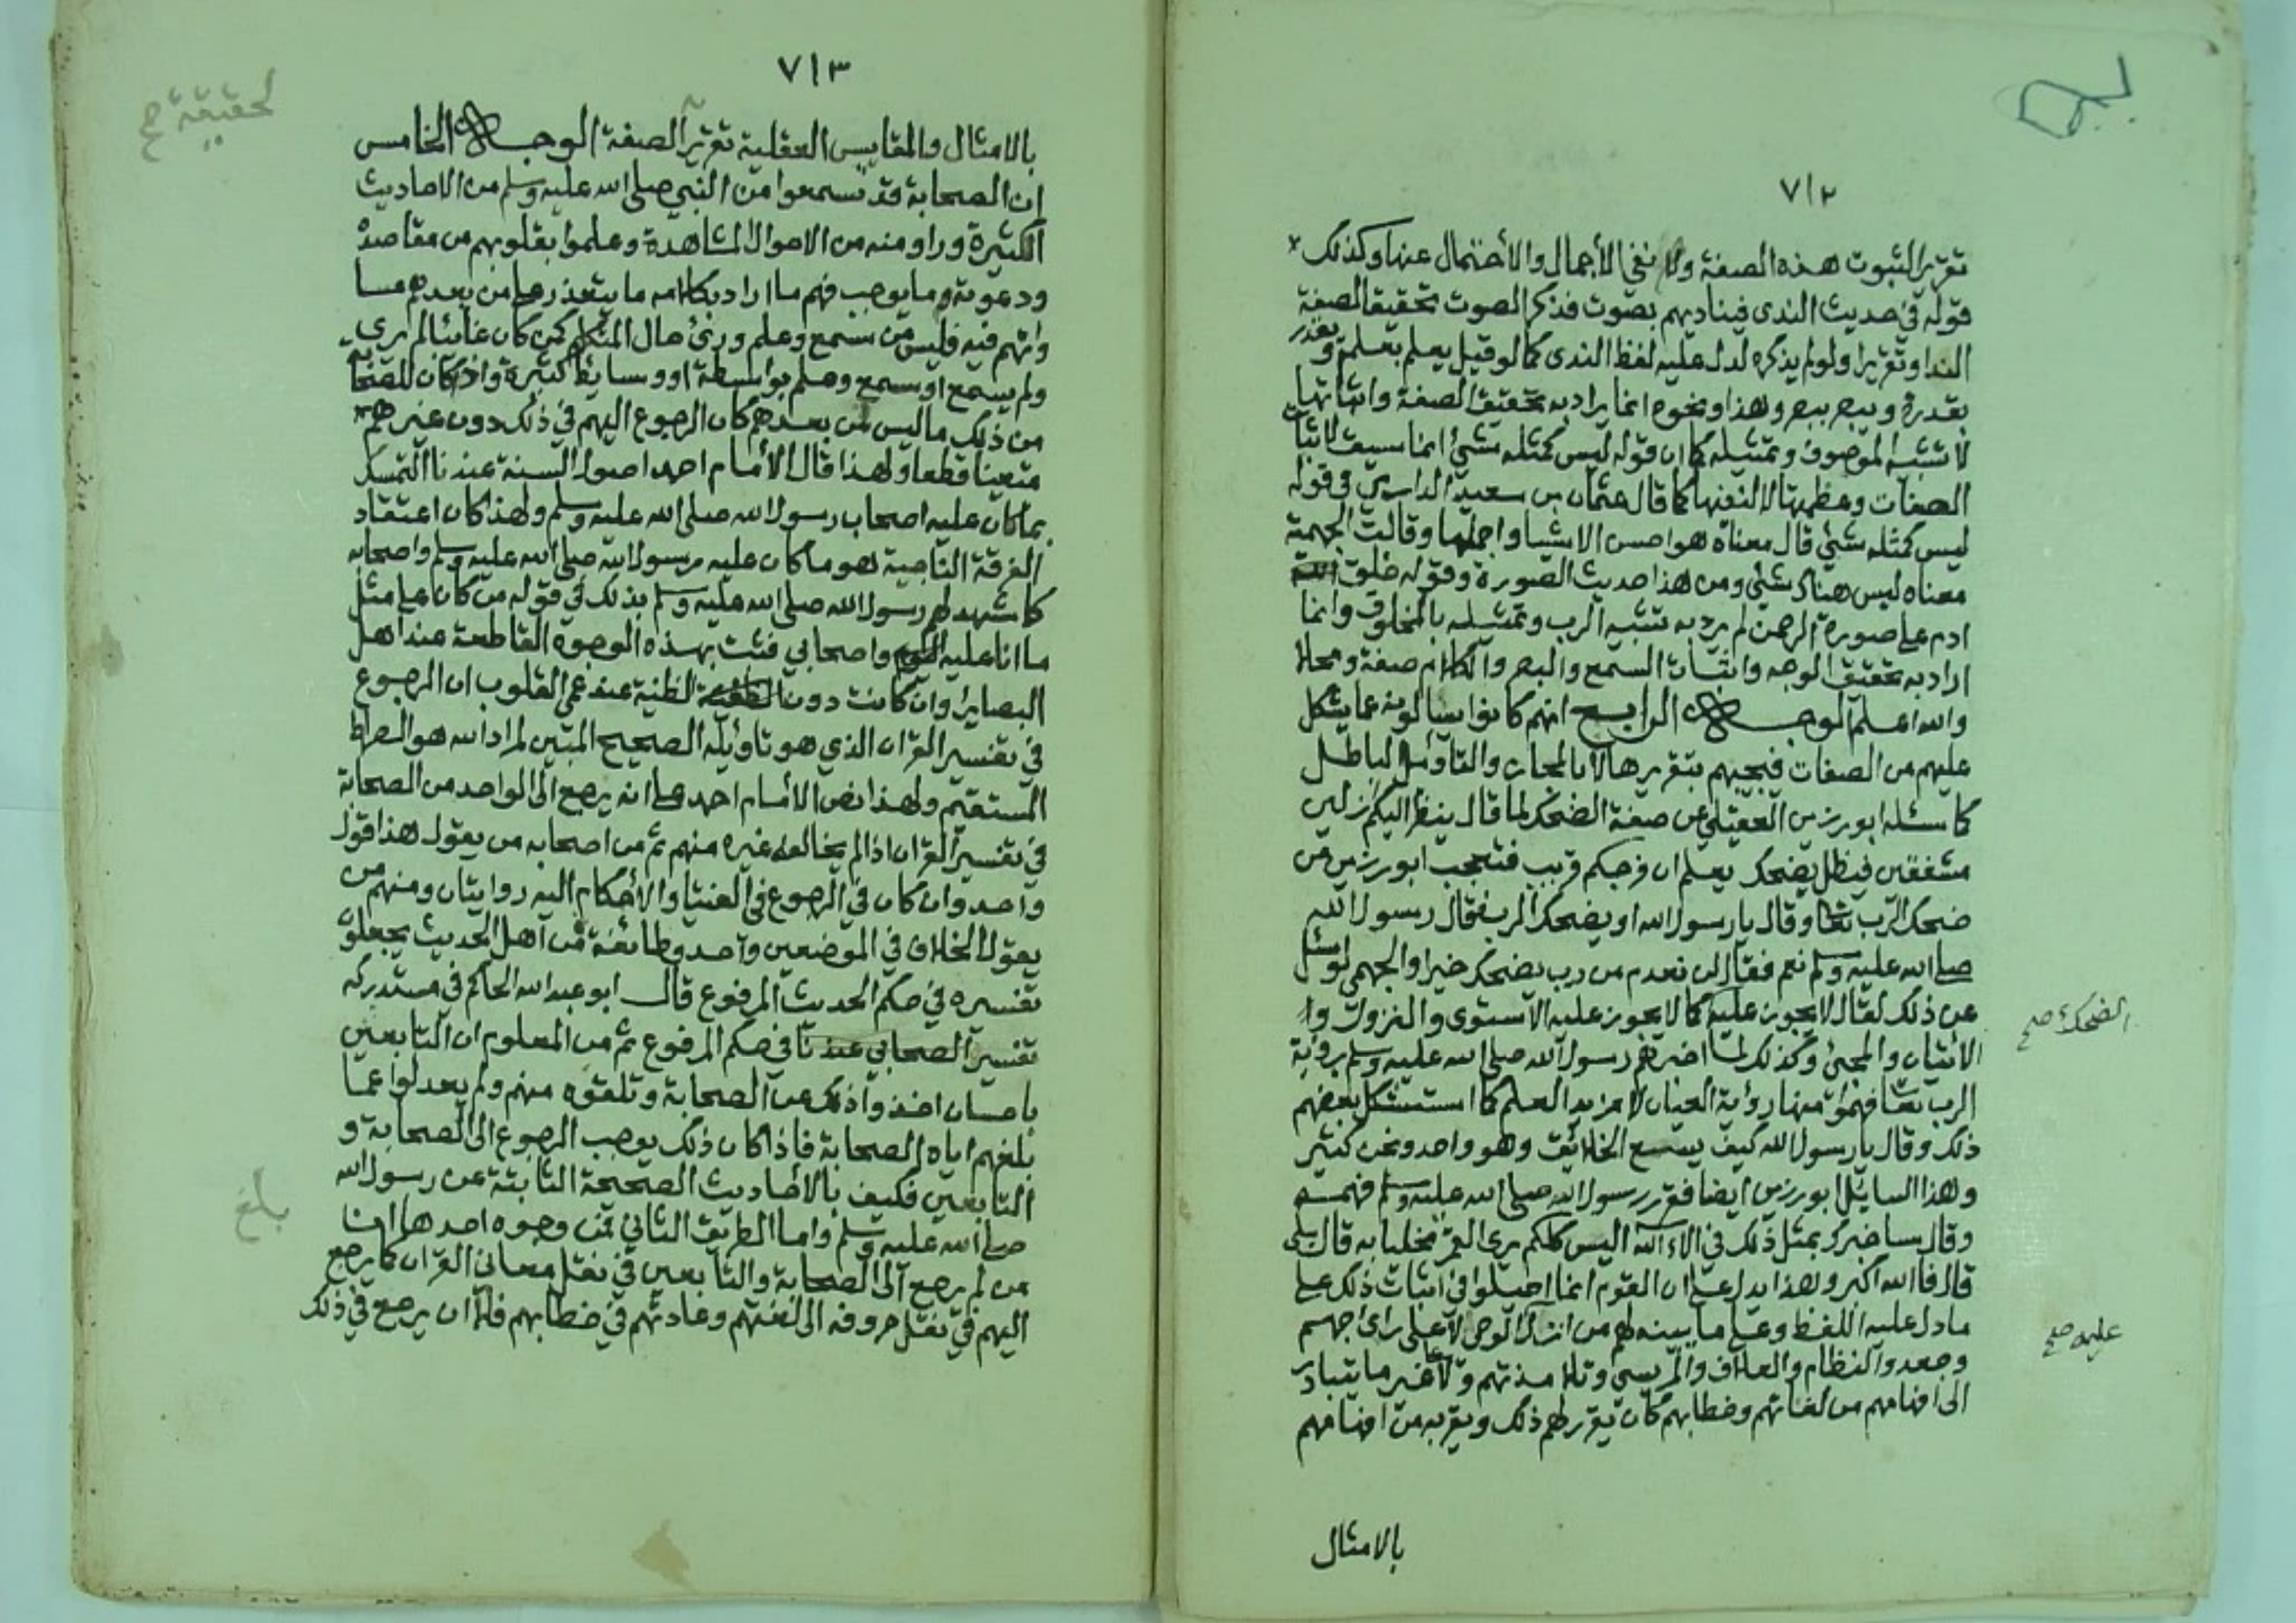 ٧١٢
تقرير الثبوت هذه الصفة ولا نفي الأجمال والأحتمال عنها وكذلك
قوله في حديث الندى فيناديهم بصوت فذكر الصوت تحقيقا لصفة
الندا وتقريرا ولو لم يذكره لدل عليه لفظ الندى كما لو قيل يعلم بعلمه ويقدر
بقدرة ويبصر ببصر وهذا ونحوه انما يراد به تحقيق الصفة واثباتها
لا تشبيه الموصوف وتمثيله كما ان قوله ليس كمثله شئ انما سيقت لاثبات
الصفات وعظمتها لا لنفيها كما قال عثمان بن سعيد الدارمي في قوله
ليس كمثله شئ قال معناه هو احسن الاشيا واجملها وقالت الجهمية
معناه ليس هناك شئ ومن هذا حديث الصورة وقوله خلق الله
ادم على صورة الرحمن لم يرد به تشبيه الرب وتمثيله بالمخلوق وانما
اراد به تحقيق الوجه واثبات السمع والبصر والكلام صفة ومحلا
والله اعلم الوجه الرابع انهم كانوا يسالونه عما يشكل
عليهم من الصفات فيجيبهم بتقريرها لا بالمجاز والتاويل الباطل
كما سئله ابو رزين العقيلي عن صفة الضحك لما قال ينظر اليكم ازلين
مشفقين فيظل يضحك يعلم ان فرجكم قريب فتعجب ابو رزين من
ضحك الرب تعا وقال يا رسول الله او يضحك الرب فقال رسول الله
صلى الله عليه وسلم نعم فقال لن نعدم من رب يضحك خيرا والجهمي لو سئل
عن ذلك لقال لا يجوز عليه كما لا يجوز عليه الاستوى والنزول وا
الضحك صح
الأتيان والمجئ وكذلك لما اخبرهم رسول الله صلى الله عليه وسلم برؤية
الرب تعا فهموا منها رؤية العيان لا مزيد العلم كما استشكل بعضهم
ذلك وقال يا رسول الله كيف يسع الخلائق وهو واحد ونحن كثير
وهذا السايل ابو رزين ايضا فقرر رسول الله صلى الله عليه وسلم فهمه
وقال ساخبرك بمثل ذلك في الاء الله اليس كلكم يرى القمر مخليا به قال بلى
قال فالله اكبر وهذا يدل على ان القوم انما احيلوا في اثبات ذلك على
ما دل عليه اللفظ وعلى ما بينه لهم من انزل الوحي لا على راي جهم
عليه صح
وجعد والنظام والعلاف والمريسي وتلامذتهم ولا غير ما يتبادر
الى افهامهم من لغاتهم وخطابهم كان يقرر لهم ذلك ويقربه من افهامهم
بالامثال
٧١٣
بالامثال والمقايس العقلية تقرير الصفة الوجه الخامس
لحقيقة صح
ان الصحابة قد سمعوا من النبي صلى الله عليه وسلم من الاحاديث
الكثيرة وراو منه من الاحوال المشاهدة وعلموا بقلوبهم من مقاصده
ودعوته وما يوجب فهم ما اراد بكلامه ما يتعذر على من بعدهم مسا
واتهم فيه فليس من سمع وعلم ورئ حال المتكلم كمن كان غائبا لم يرى
ولم يسمع او سمع وعلم بواسطة او وسايط كثيرة واذا كان للصحابة
من ذلك ما ليس لمن بعدهم كان الرجوع اليهم في ذلك دون غيرهم
متعينا قطعا ولهذا قال الأمام احمد اصول السنة عندنا التمسك
بما كان عليه اصحاب رسول الله صلى الله عليه وسلم ولهذا كان اعتقاد
الفرقة الناجية هو ما كان عليه رسول الله صلى الله عليه وسلم واصحابه
كما شهد لهم رسول الله صلى الله عليه وسلم بذلك في قوله من كان على مثل
ما انا عليه اليوم واصحابي فثبت بهذه الوجوه القاطعة عند اهل
البصاير وان كانت دون الظنية عند عمي القلوب ان الرجوع
في تفسير القران الذي هو تاويله الصحيح المبين لمراد الله هو الصراط
المستقيم ولهذا نص الأمام احمد على انه يرجع الى الواحد من الصحابة
في تفسير القران اذا لم يخالفه غيره منهم ثم من اصحابه من يقول هذا قول
واحد وان كان في الرجوع في الفتيا والأحكام اليه روايتان ومنهم من
يقول الخلاف في الموضعين واحد وطائفة من اهل الحديث يجعلون
تفسيره في حكم الحديث المرفوع قال ابو عبد الله الحاكم في مستدركه
تفسير الصحابي عندنا في حكم المرفوع ثم من المعلوم ان التابعين
باحسان اخذوا ذلك عن الصحابة وتلقوه منهم ولم يعدلوا عما
بلغهم اياه الصحابة فاذا كان ذلك يوجب الرجوع الى الصحابة و
التابعين فكيف بالأحاديث الصحيحة الثابتة عن رسول الله
بلغ
صلى الله عليه وسلم واما الطريق الثاني فمن وجوه احدها ان
من لم يرجع الى الصحابة والتابعين في نقل معاني القران كما يرجع
اليهم في نقل حروفه الى لغتهم وعادتهم في خطابهم فلا ان يرجع في ذلك